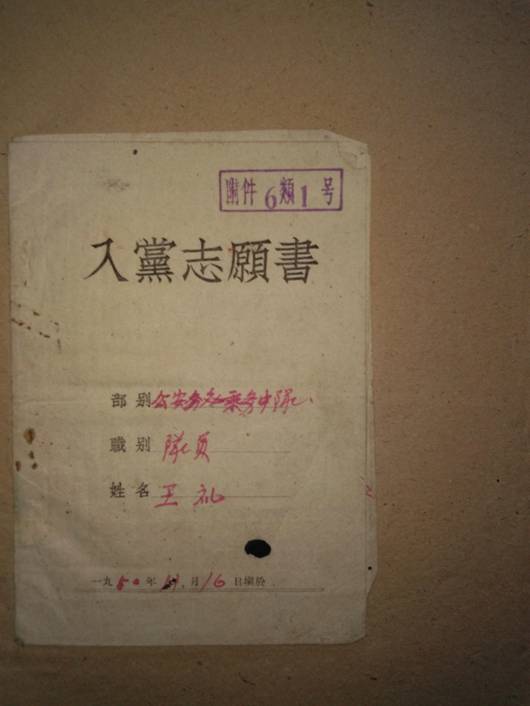 附件6類1号
入黨志願書
部别公安乘务中隊
職别 隊員
姓名 王礼
一九五〇年 月16日填於